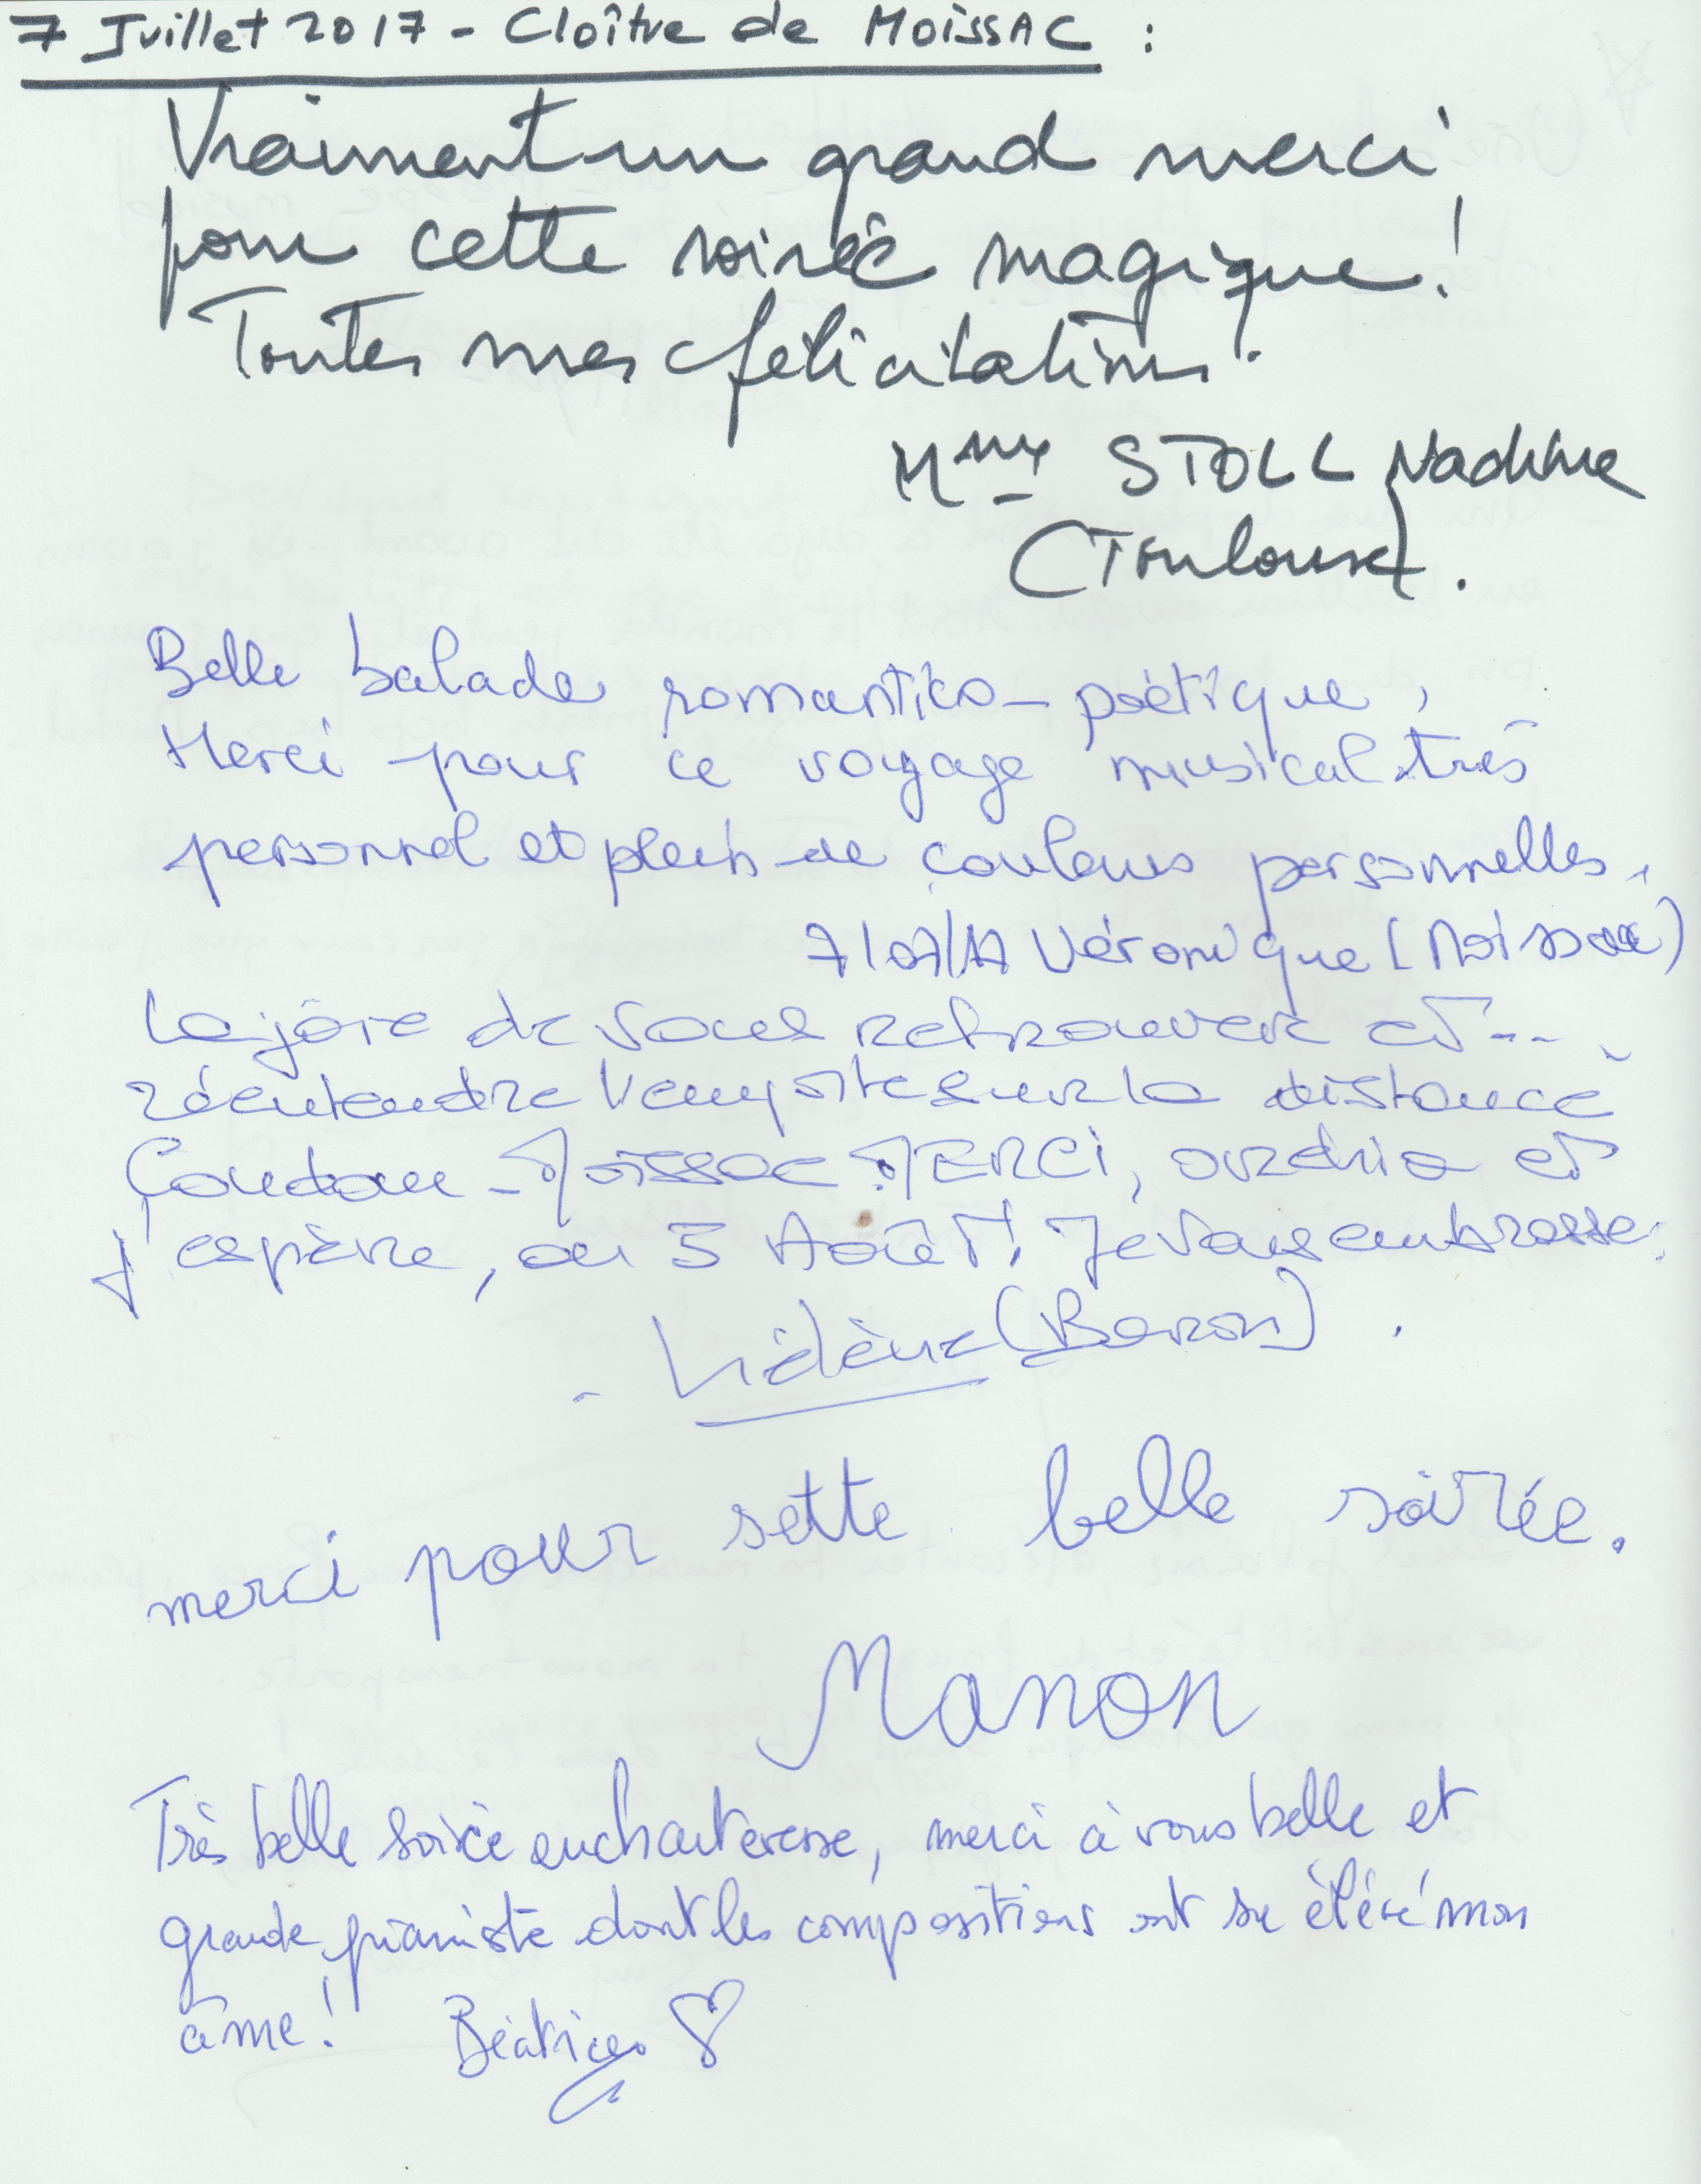 7 Juillet 2017 - Cloître de MOISSAC :
Vraiment un grand merci
pour cette soirée magique !
Toutes mes félicitations.
Mme STOLL Nadine
(Toulouse).
Belle balade romantico-poétique,
Merci pour ce voyage musical très
personnel et plein de couleurs personnelles.
7/07/17 Véronique (Moissac)
La joie de vous retrouver et...
réentendre sur la distance
Condom - Moissac MERCI, et
j'espère, au 5 Août! Je vous embrasse.
- Hélène (Baron).
merci pour sette belle soirée.
Manon
Très belle soirée enchanteresse, merci à vous belle et
grande pianiste dont les compositions ont su élévé mon
âme! Béatrice ♡